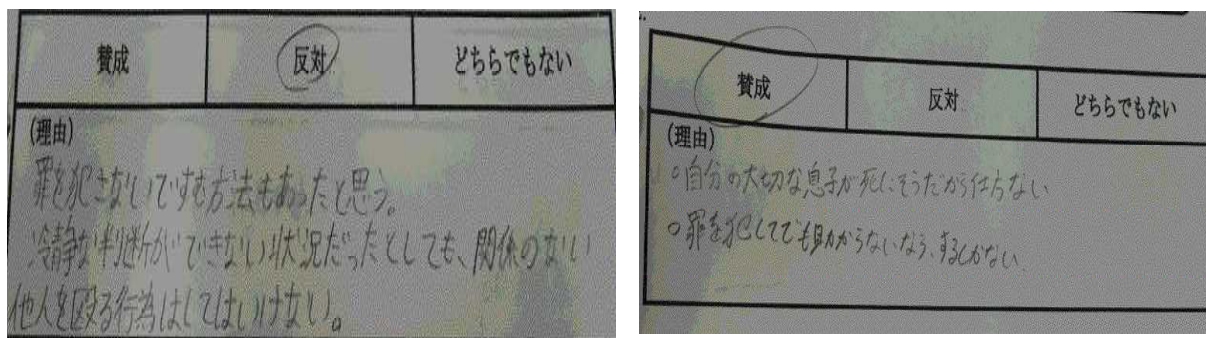 賛成 反対 どちらでもない
(理由)
罪を犯さないですむ方法もあったと思う。
冷静な判断ができない状況だったとしても、関係のない
他人を殴る行為はしてはいけない。
賛成 反対 どちらでもない
(理由)
○自分の大切な息子が死にそうだから仕方ない
○罪を犯してでも助からないなら、するしかない。